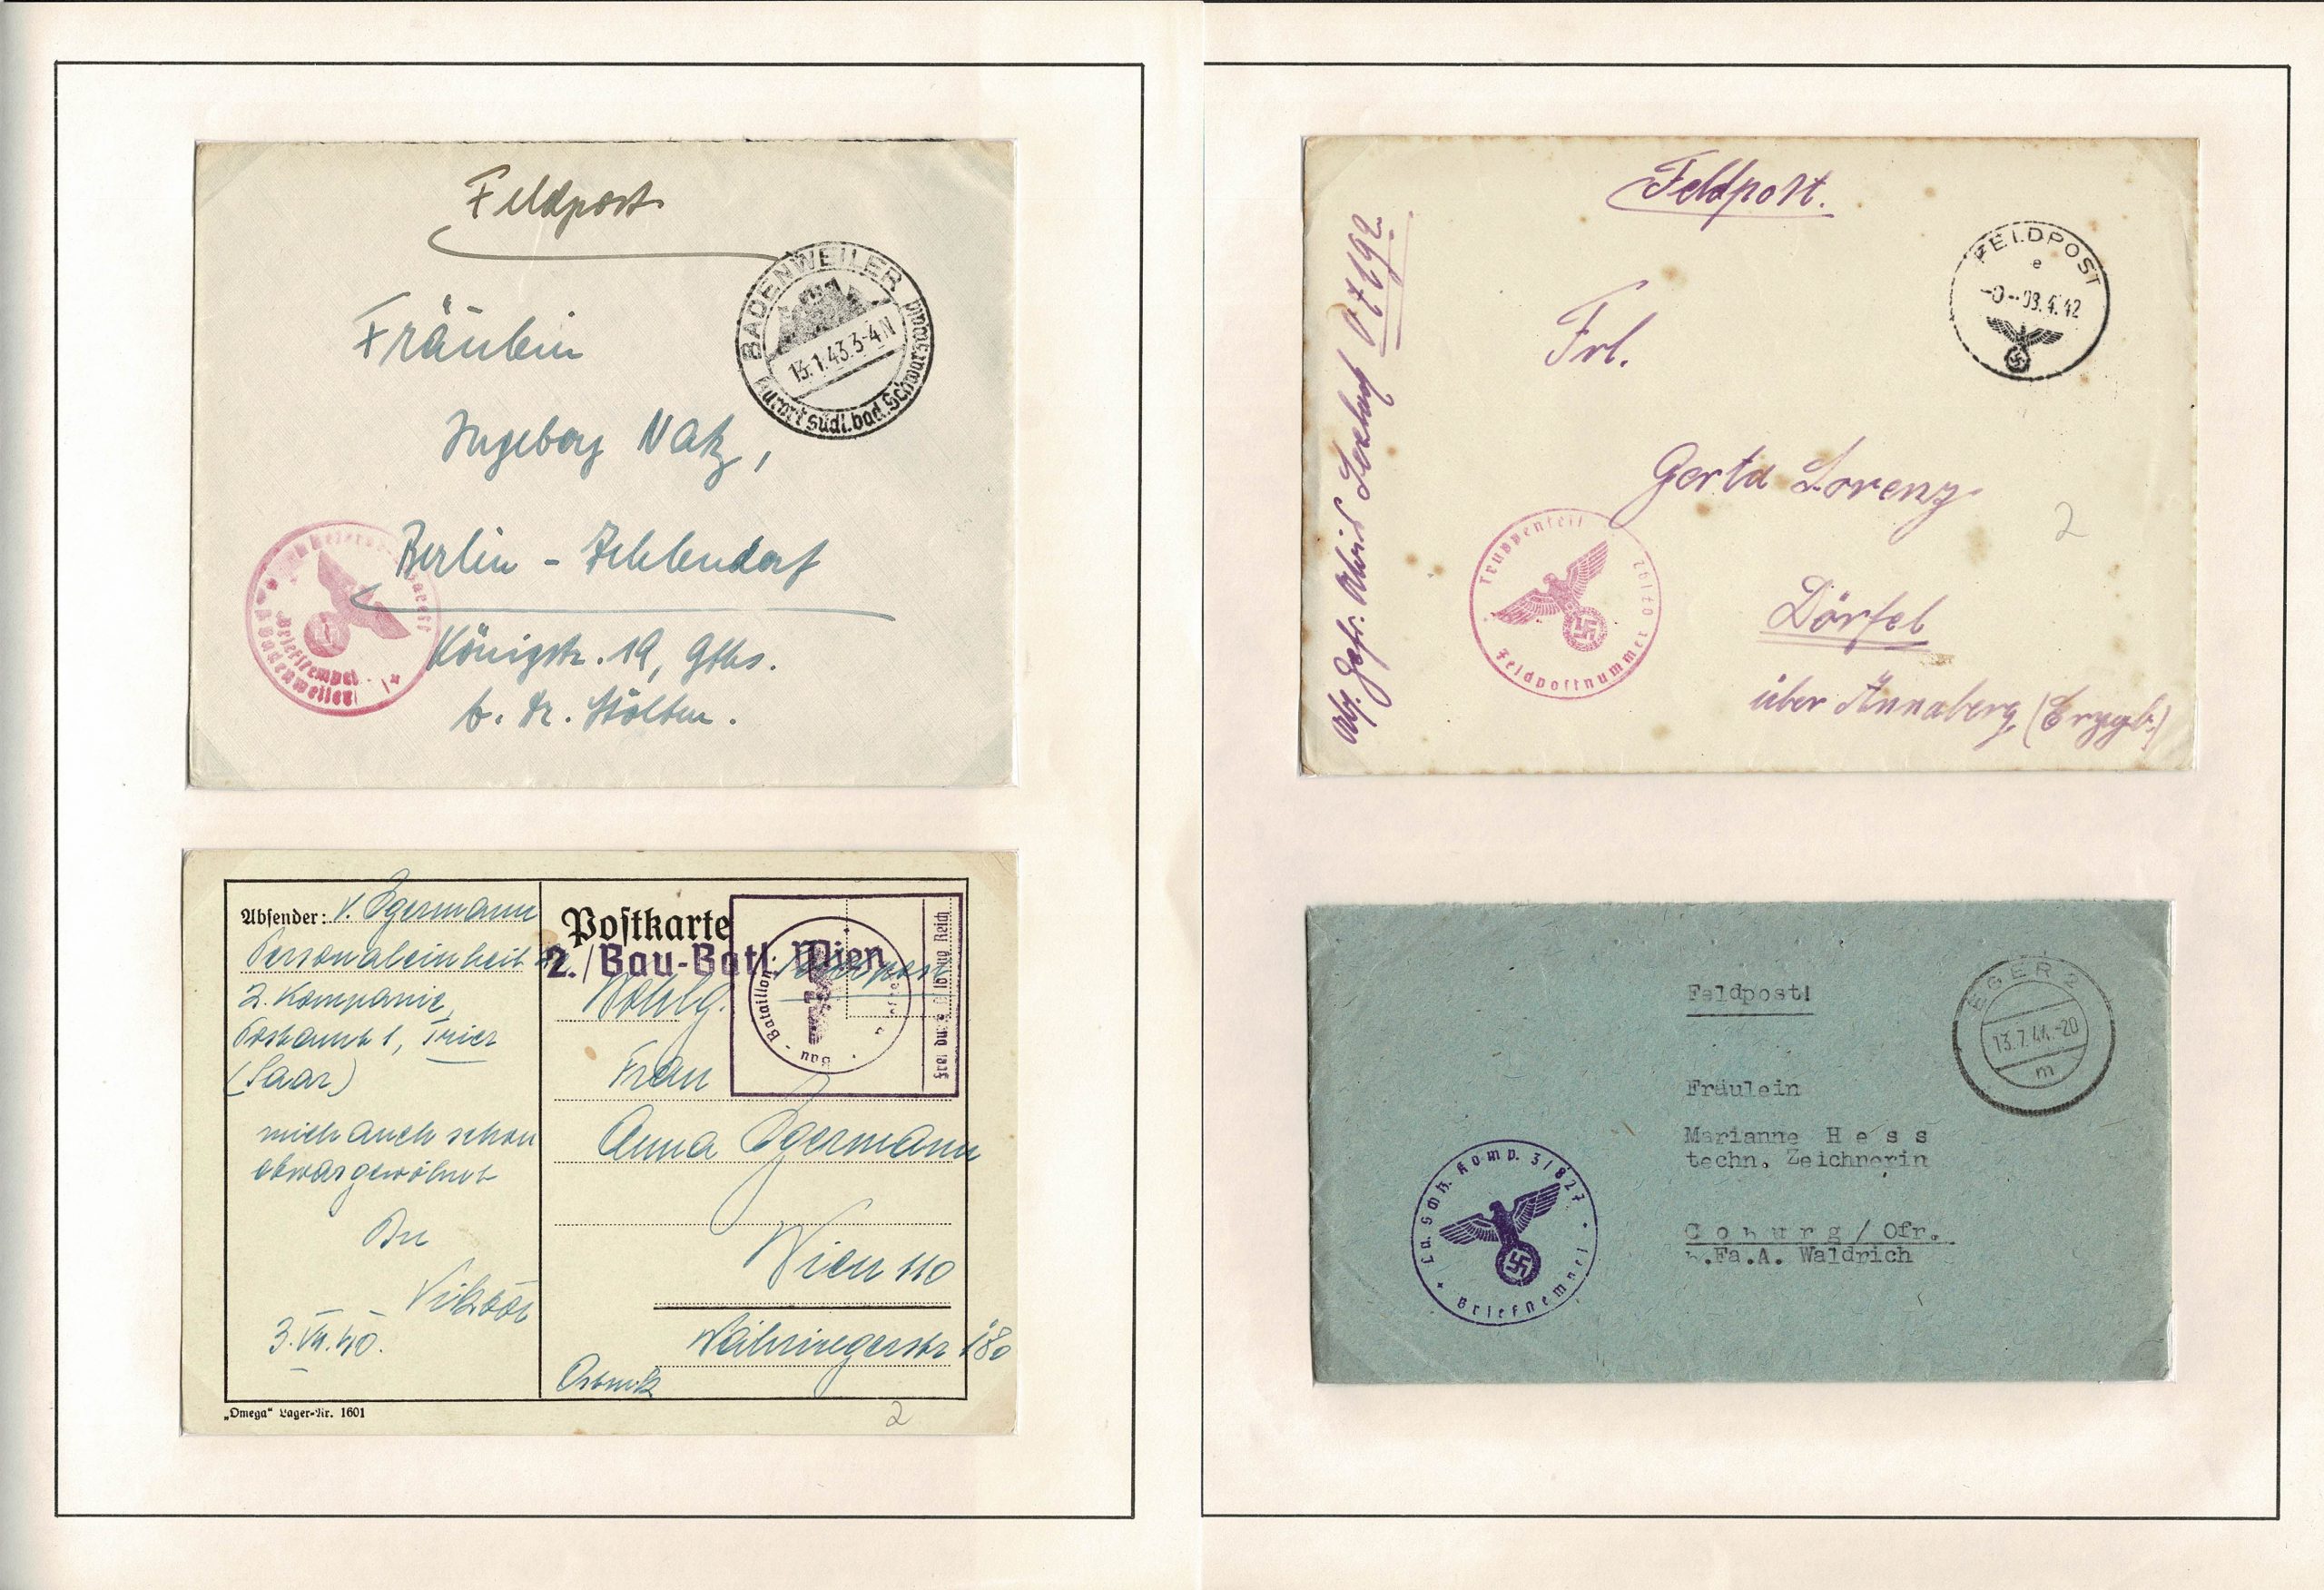 Feldpost
BADENWEILER
13.1.43.3-4N
Kurort südl. bad. Schwarzwald
Fräulein
Ingeborg Natz,
Berlin - Zehlendorf
Königstr. 19, Gths.
b. Dr. Stölten.
Briefstempel
Badenweiler
Feldpost.
FELDPOST
e
03.4.42
Frl.
Gerta Lorenz
2
Dörfel
über Annaberg (Erzgb.)
Abs. Gefr. 07192
Truppenteil
Feldpostnummer 07192
Absender: V. Egermann
Personaleinheit
2. Kompanie,
Postamt 1, Trier
(Saar)
mich auch schon
etwas gewöhnt
Dein
Viktor
3.VII.40.
"Omega" Lager-Nr. 1601
Postkarte
2./Bau-Batl. Wien
Feldpost
Bau-Bataillon
Frei durch Ablösung Reich
Wohlg.
Frau
Anna Egermann
Wien 110
Währingerstr 180
Ostmk
2
Feldpost!
EGER 2
13.7.44.-20
m
Fräulein
Marianne Hess
techn. Zeichnerin
Coburg/Ofr.
b.Fa.A. Waldrich
Ldsschtz. Komp. 3/827
Briefstempel